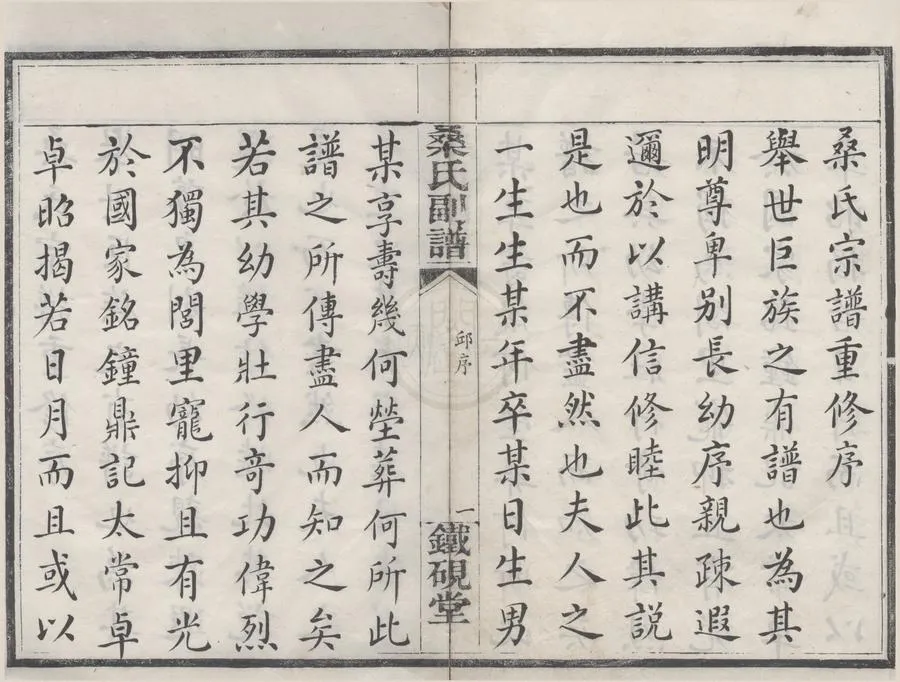 桑氏宗譜重修序
舉世巨族之有譜也為其
明尊卑别長幼序親疎遐
邇於以講信修睦此其説
是也而不盡然也夫人之
一生生某年卒某日生男
桑氏副譜
邱序
一
鐵硯堂
某享壽幾何塋葬何所此
譜之所傳盡人而知之矣
若其幼學壯行奇功偉烈
不獨為閭里寵抑且有光
於國家銘鐘鼎記太常卓
卓昭揭若日月而且或以